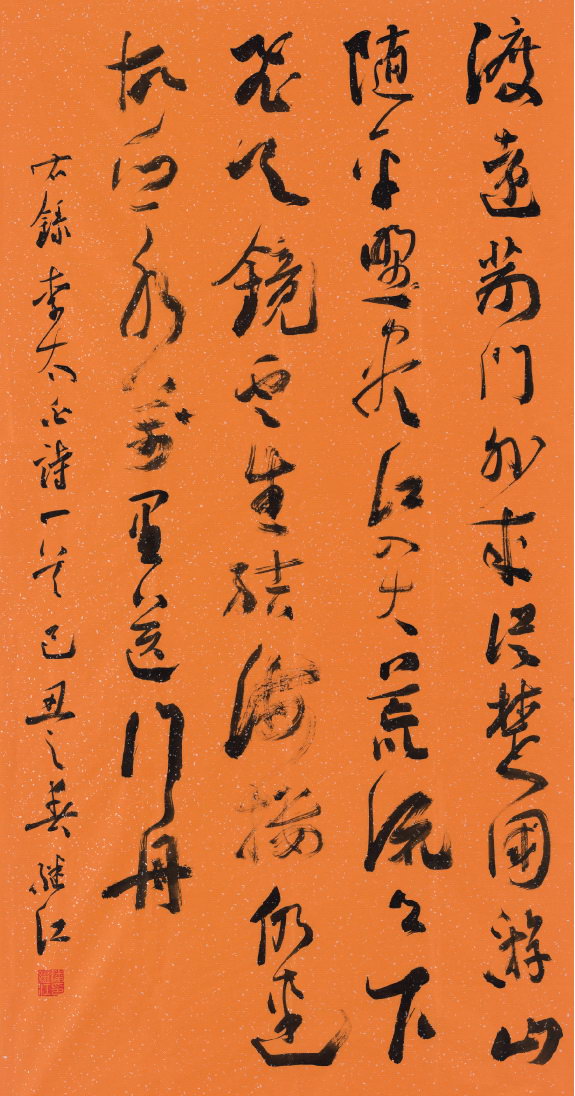 渡遠荆门外来從楚國游山
随平野尽江入大荒流月下
飛天鏡雲生結海樓仍連
故鄉水萬里送行舟
右録李太白詩一首己丑之春继江